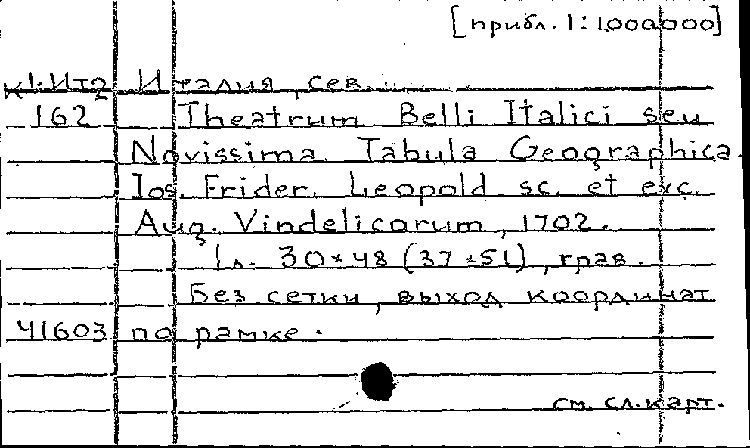 [прибл. 1:1000000]
К1:Ит2 Италия, сев.
162 Theatrum Belli Italici seu
Novissima Tabula Geographica.
Ios. Frider. Leopold sc. et exc.
Aug. Vindelicorum, 1702.
1 л. 30×48 (37×51), грав.
Без сетки, выход координат
41603 по рамке.
см. сл. карт.